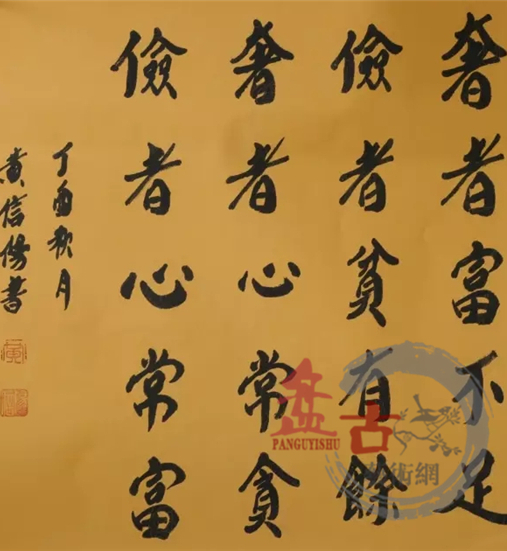 奢者富不足
儉者貧有餘
奢者心常貧
儉者心常富
丁酉秋月
黄信陽書
盘古
PANGUYISHU
術網